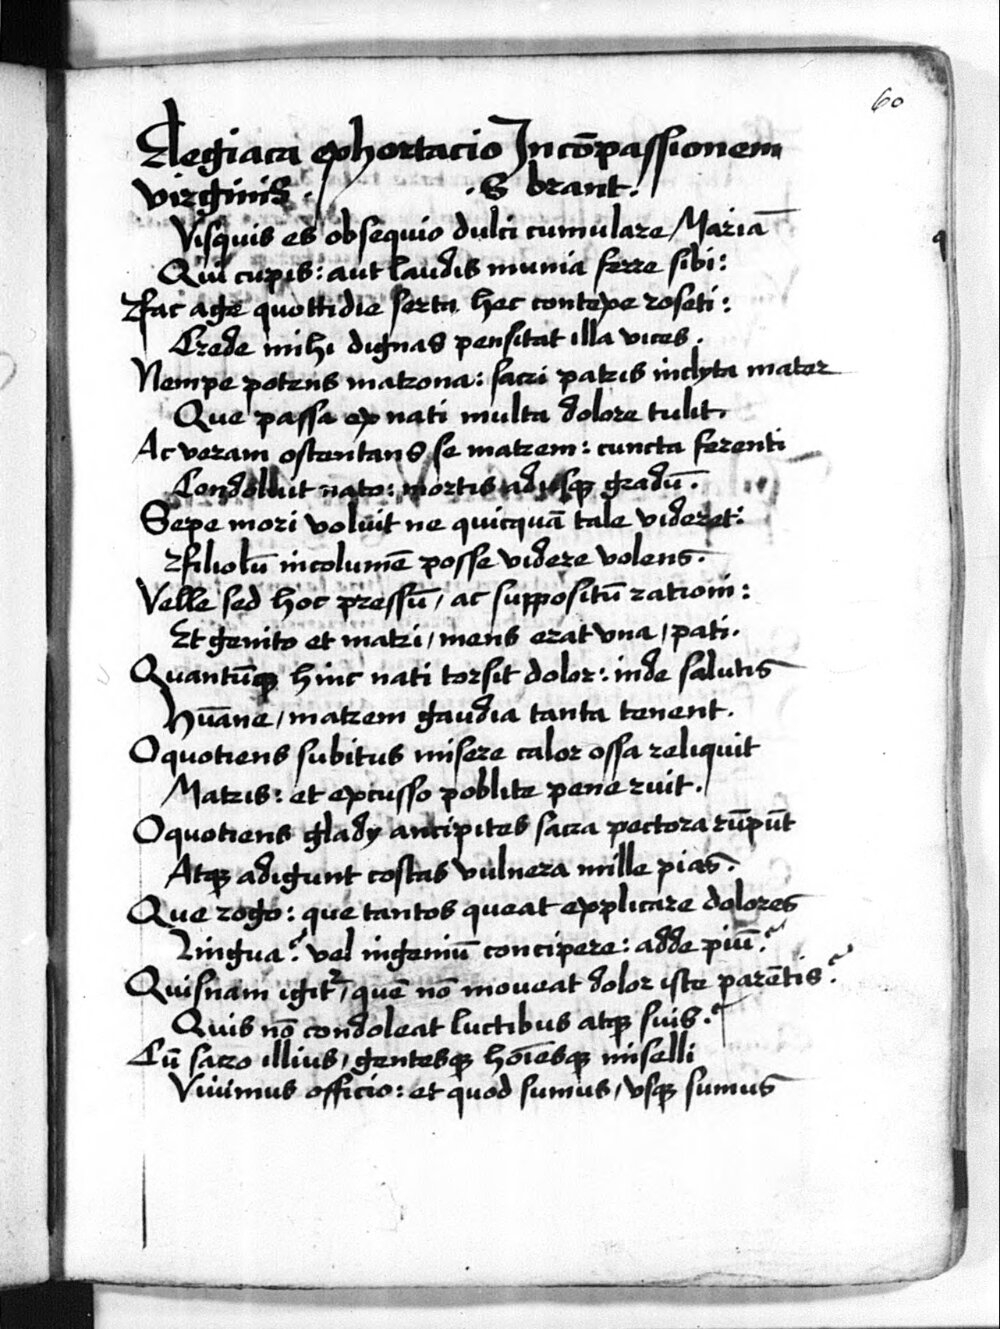 60
Elegiaca exhortacio In cōpassionem
virginis . S brant.
Visquis es obsequio dulci cumulare Mariā
Qui cupis: aut laudis munia ferre sibi:
Fac age quottidie serta hec contexe roseti:
Crede mihi dignas pensitat illa vices.
Nempe potens matrona: sacri patris inclyta mater
Que passa ex nati multa dolore tulit.
Ac veram ostentans se matrem: cuncta ferenti
Condolluit nato: mortis adusqꝫ gradū.
Sepe mori voluit ne quicquā tale videret:
Filiolū incolumē posse videre volens.
Velle sed hoc pressū / ac suppositū rationi:
Et genito et matri / mens erat vna / pati.
Quantūqꝫ hinc nati torsit dolor: inde salutis
Hūane / matrem gaudia tanta tenent.
O quotiens subitus misere calor ossa reliquit
Matris: et excusso poblite pene ruit.
O quotiens glady ancipites sacra pectora rūpūt
Atqꝫ adigunt costas vulnera mille pias.
Que rogo: que tantos queat explicare dolores
Lingua? vel ingeniū concipere: adde piū?
Quisnam igit᷑ / quē nō moueat dolor iste parētis?
Quis nō condoleat luctibus atqꝫ suis?
Cū sacro illius / gentesqꝫ hoīesqꝫ miselli
Viuimus officio: et quod sumus / vsqꝫ sumus